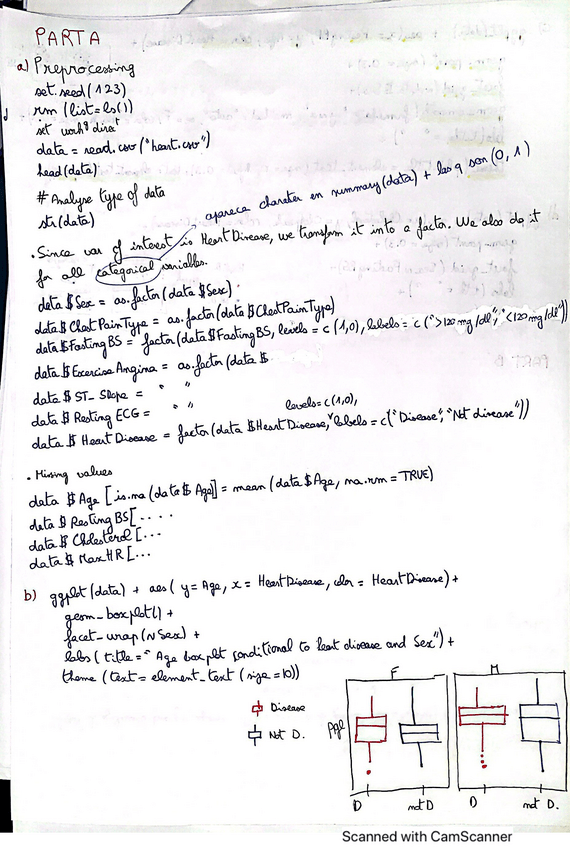 PART A
a) Preprocessing
set.seed(123)
rm(list=ls())
set work direct
data = read.csv("heart.csv")
head(data)
# Analyse type of data
str(data)
aparece charater en summary(data) + las q son (0, 1)
· Since var of interest is Heart Disease, we transform it into a factor. We also do it
for all categorical variables.
data $Sex = as.factor(data $Sex)
data $ ChestPainType = as.factor(data $ ChestPainType)
data $ FastingBS = factor(data $ FastingBS, levels = c(1,0), labels = c(">120 mg/dl", "<120 mg/dl"))
data $ Exercise Angina = as.factor(data $
data $ ST_Slope = " "
data $ Resting ECG = " "
levels = c(1,0),
data $ Heart Disease = factor(data $ Heart Disease, labels = c("Disease", "Not disease"))
· Missing values
data $ Age [is.na(data $ Age)] = mean(data $ Age, na.rm = TRUE)
data $ RestingBS[ ....
data $ Cholesterol[...
data $ MaxHR[...
b) ggplot(data) + aes( y = Age, x = HeartDisease, color = HeartDisease) +
geom_boxplot() +
facet_wrap(~Sex) +
labs( title = " Age boxplot conditional to heart disease and Sex") +
theme (text = element_text (size = 10))
F M
Disease
Not D.
Age
D not D D not D.
Scanned with CamScanner